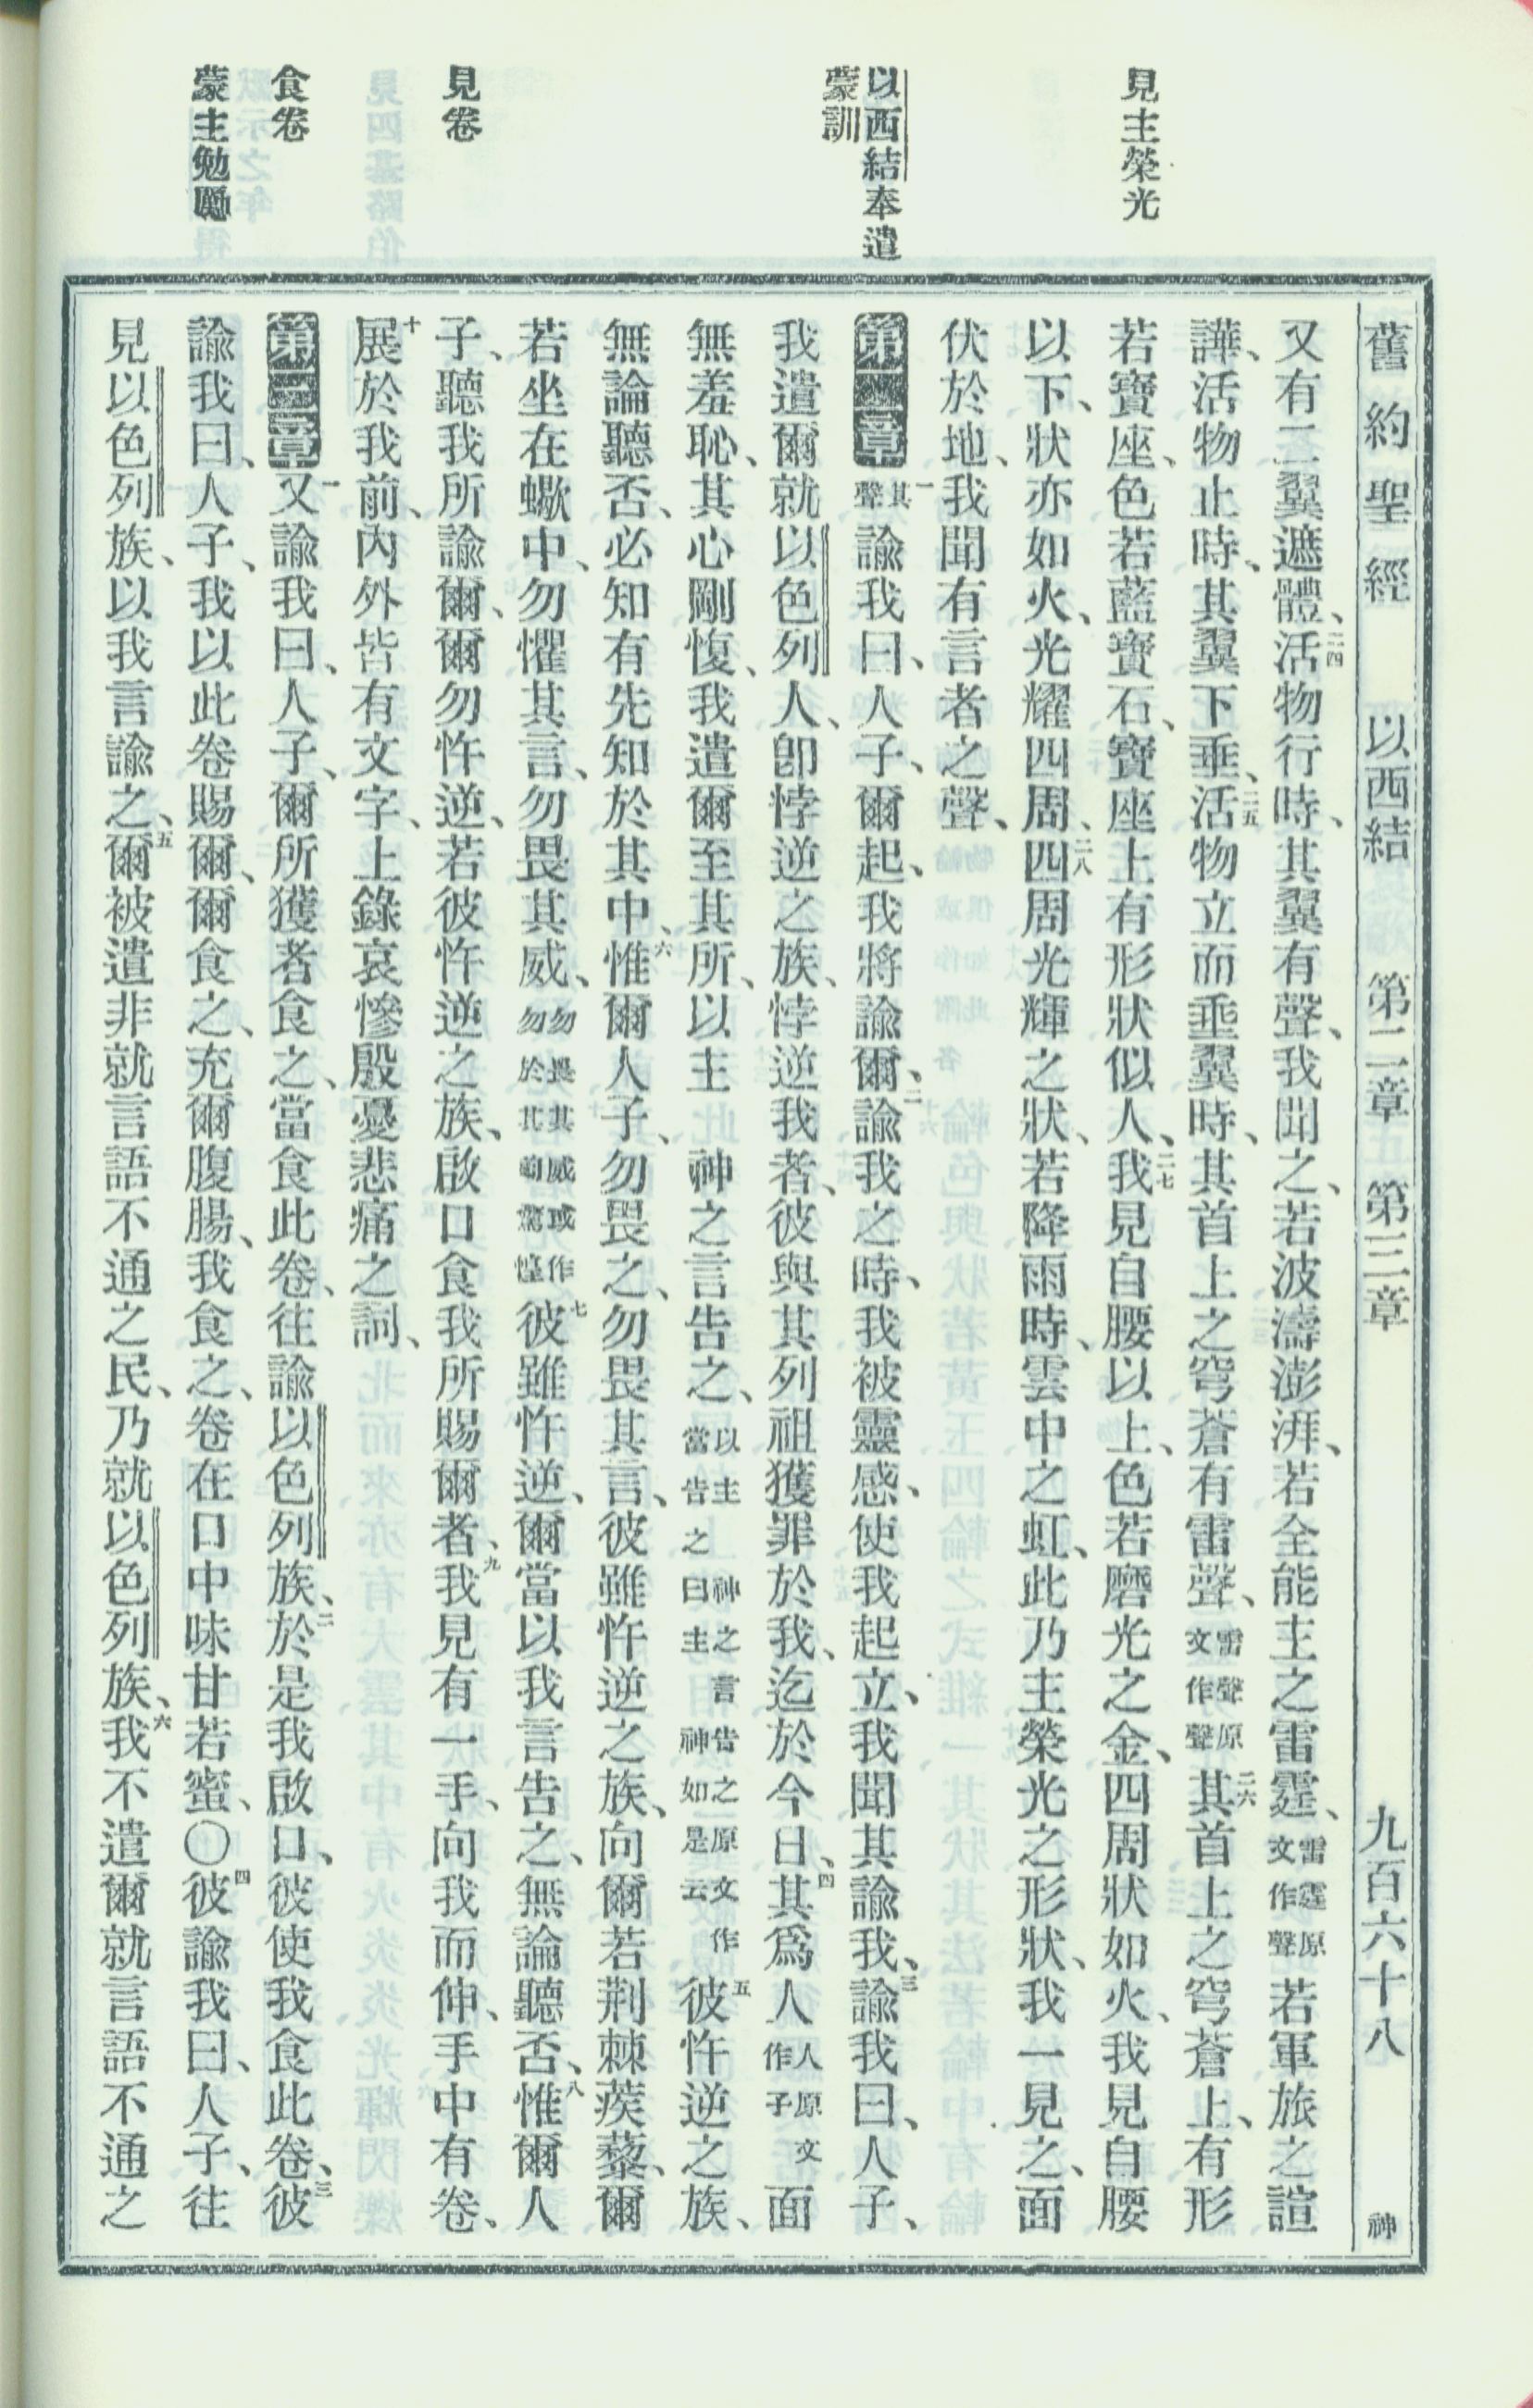 見主榮光
以西結奉遣
蒙訓
見卷
食卷
蒙主勉勵
舊約聖經 以西結 第二章 第三章 九百六十八 神
又有二翼遮體、二四活物行時、其翼有聲、我聞之、若波濤澎湃、若全能主之雷霆、雷霆原文作聲若軍旅之諠
譁、活物止時、其翼下垂、二五活物立而垂翼時、其首上之穹蒼有雷聲、雷聲原文作聲二六其首上之穹蒼上、有形
若寶座、色若藍寶石、寶座上有形狀似人、二七我見自腰以上、色若磨光之金、四周狀如火、我見自腰
以下、狀亦如火、光耀四周、二八四周光輝之狀、若降雨時、雲中之虹、此乃主榮光之形狀、我一見之、面
伏於地、我聞有言者之聲、
第二章一其聲諭我曰、人子、爾起、我將諭爾、二諭我之時、我被靈感、使我起立、我聞其諭我、三諭我曰、人子、
我遣爾就以色列人、卽悖逆之族、悖逆我者、彼與其列祖獲罪於我、迄於今日、四其爲人人原文作子面
無羞恥、其心剛愎、我遣爾至其所、以主 神之言告之、以主 神之言告之原文作當告之曰主 神如是云五彼忤逆之族、
無論聽否、必知有先知於其中、六惟爾人子、勿畏之、勿畏其言、彼雖忤逆之族、向爾若荆棘蒺藜、爾
若坐在蠍中、勿懼其言、勿畏其威、勿畏其威或作勿於其前驚惶七彼雖忤逆、爾當以我言告之、無論聽否、八惟爾人
子、聽我所諭爾、爾勿忤逆、若彼忤逆之族、啟口食我所賜爾者、九我見有一手、向我而伸、手中有卷、
十展於我前、內外皆有文字、上錄哀慘殷憂悲痛之詞、
第三章一又諭我曰、人子、爾所獲者食之、當食此卷、往諭以色列族、二於是我啟口、彼使我食此卷、三彼
諭我曰、人子、我以此卷賜爾、爾食之、充爾腹腸、我食之、卷在口中味甘若蜜、〇四彼諭我曰、人子、往
見以色列族、以我言諭之、五爾被遣非就言語不通之民、乃就以色列族、六我不遣爾就言語不通之